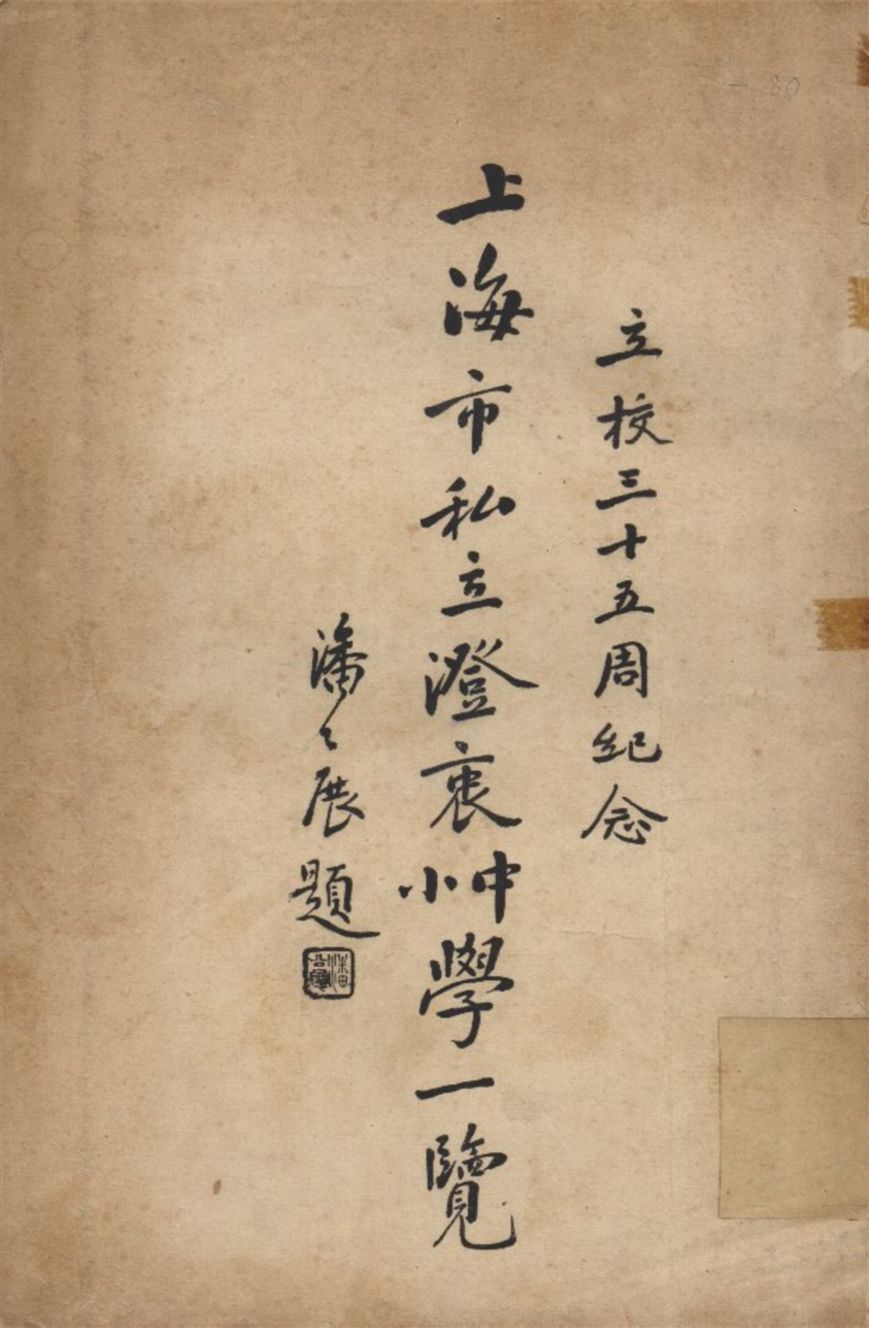 立校三十五周紀念
上海市私立澄衷中小學一覽
潘公展題
80